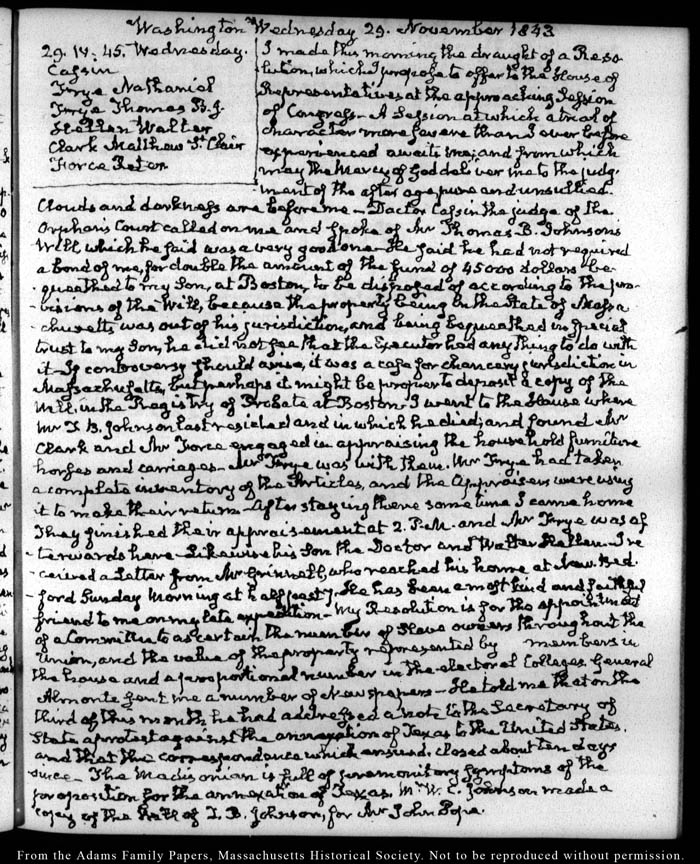 Washington Wednesday 29. November 1843
29. IV. 45. Wednesday.
Cassin
Frye Nathaniel
Frye Thomas B. J.
Hellen Walter
Clark Matthew St. Clair
Force Peter
I made this morning the draught of a Reso-
lution, which I propose to offer to the House of
Representatives at the approaching Session
of Congress - A Session at which a trial of
character more severe than I ever before
experienced awaits me; and from which
may the Mercy of God deliver me to the judg-
ment of the after age, pure and unsullied.
Clouds and darkness are before me - Doctor Cassin the judge of the
Orphan's Court called on me and spoke of Mr Thomas B. Johnson's
Will, which he said was a very good one - He said he had not required
a bond of me, for double the amount of the fund of 45000 dollars be-
queathed to my Son, at Boston, to be disposed of according to the pro-
visions of the Will, because the property being in the State of Massa-
chusetts, was out of his jurisdiction, and being bequeathed in special
trust to my Son, he did not see that the Executor had any thing to do with
it - If controversy should arise, it was a case for chancery jurisdiction in
Massachusetts, but perhaps it might be proper to deposit a copy of the
Will, in the Registry of Probate at Boston. I went to the House where
Mr T. B. Johnson last resided and in which he died; and found Mr
Clark and Mr Force engaged in appraising the household furniture
horses and carriages - Mr Frye was with them. Mr Frye had taken
a complete inventory of the Articles, and the Appraisers were using
it to make their return - After staying there some time I came home
They finished their appraisement at 2. P.M. and Mr Frye was af-
terwards here - Likewise his Son the Doctor and Walter Hellen - I re-
ceived a Letter from Mr Grinnell, who reached his home at New Bed-
ford Sunday Morning at half past 7. He has been a most kind and faithful
friend to me on my late expedition - My Resolution is for the appointment
of a Committee to ascertain the number of Slave owners throughout the
Union, and the value of the property represented by members in
the house and a proportional number in the electoral Colleges. General
Almonte sent me a number of Newspapers - He told me that on the
third of this month he had addressed a note to the Secretary of
State a protest against the annexation of Texas to the United States.
and that the correspondence which ensued, closed about ten days
since - The Madisonian is full of premonitory symptoms of the
proposition for the annexation of Texas. Mr W. C. Johnson made a
copy of the Will of T. B. Johnson, for Mr John Pope.
From the Adams Family Papers, Massachusetts Historical Society. Not to be reproduced without permission